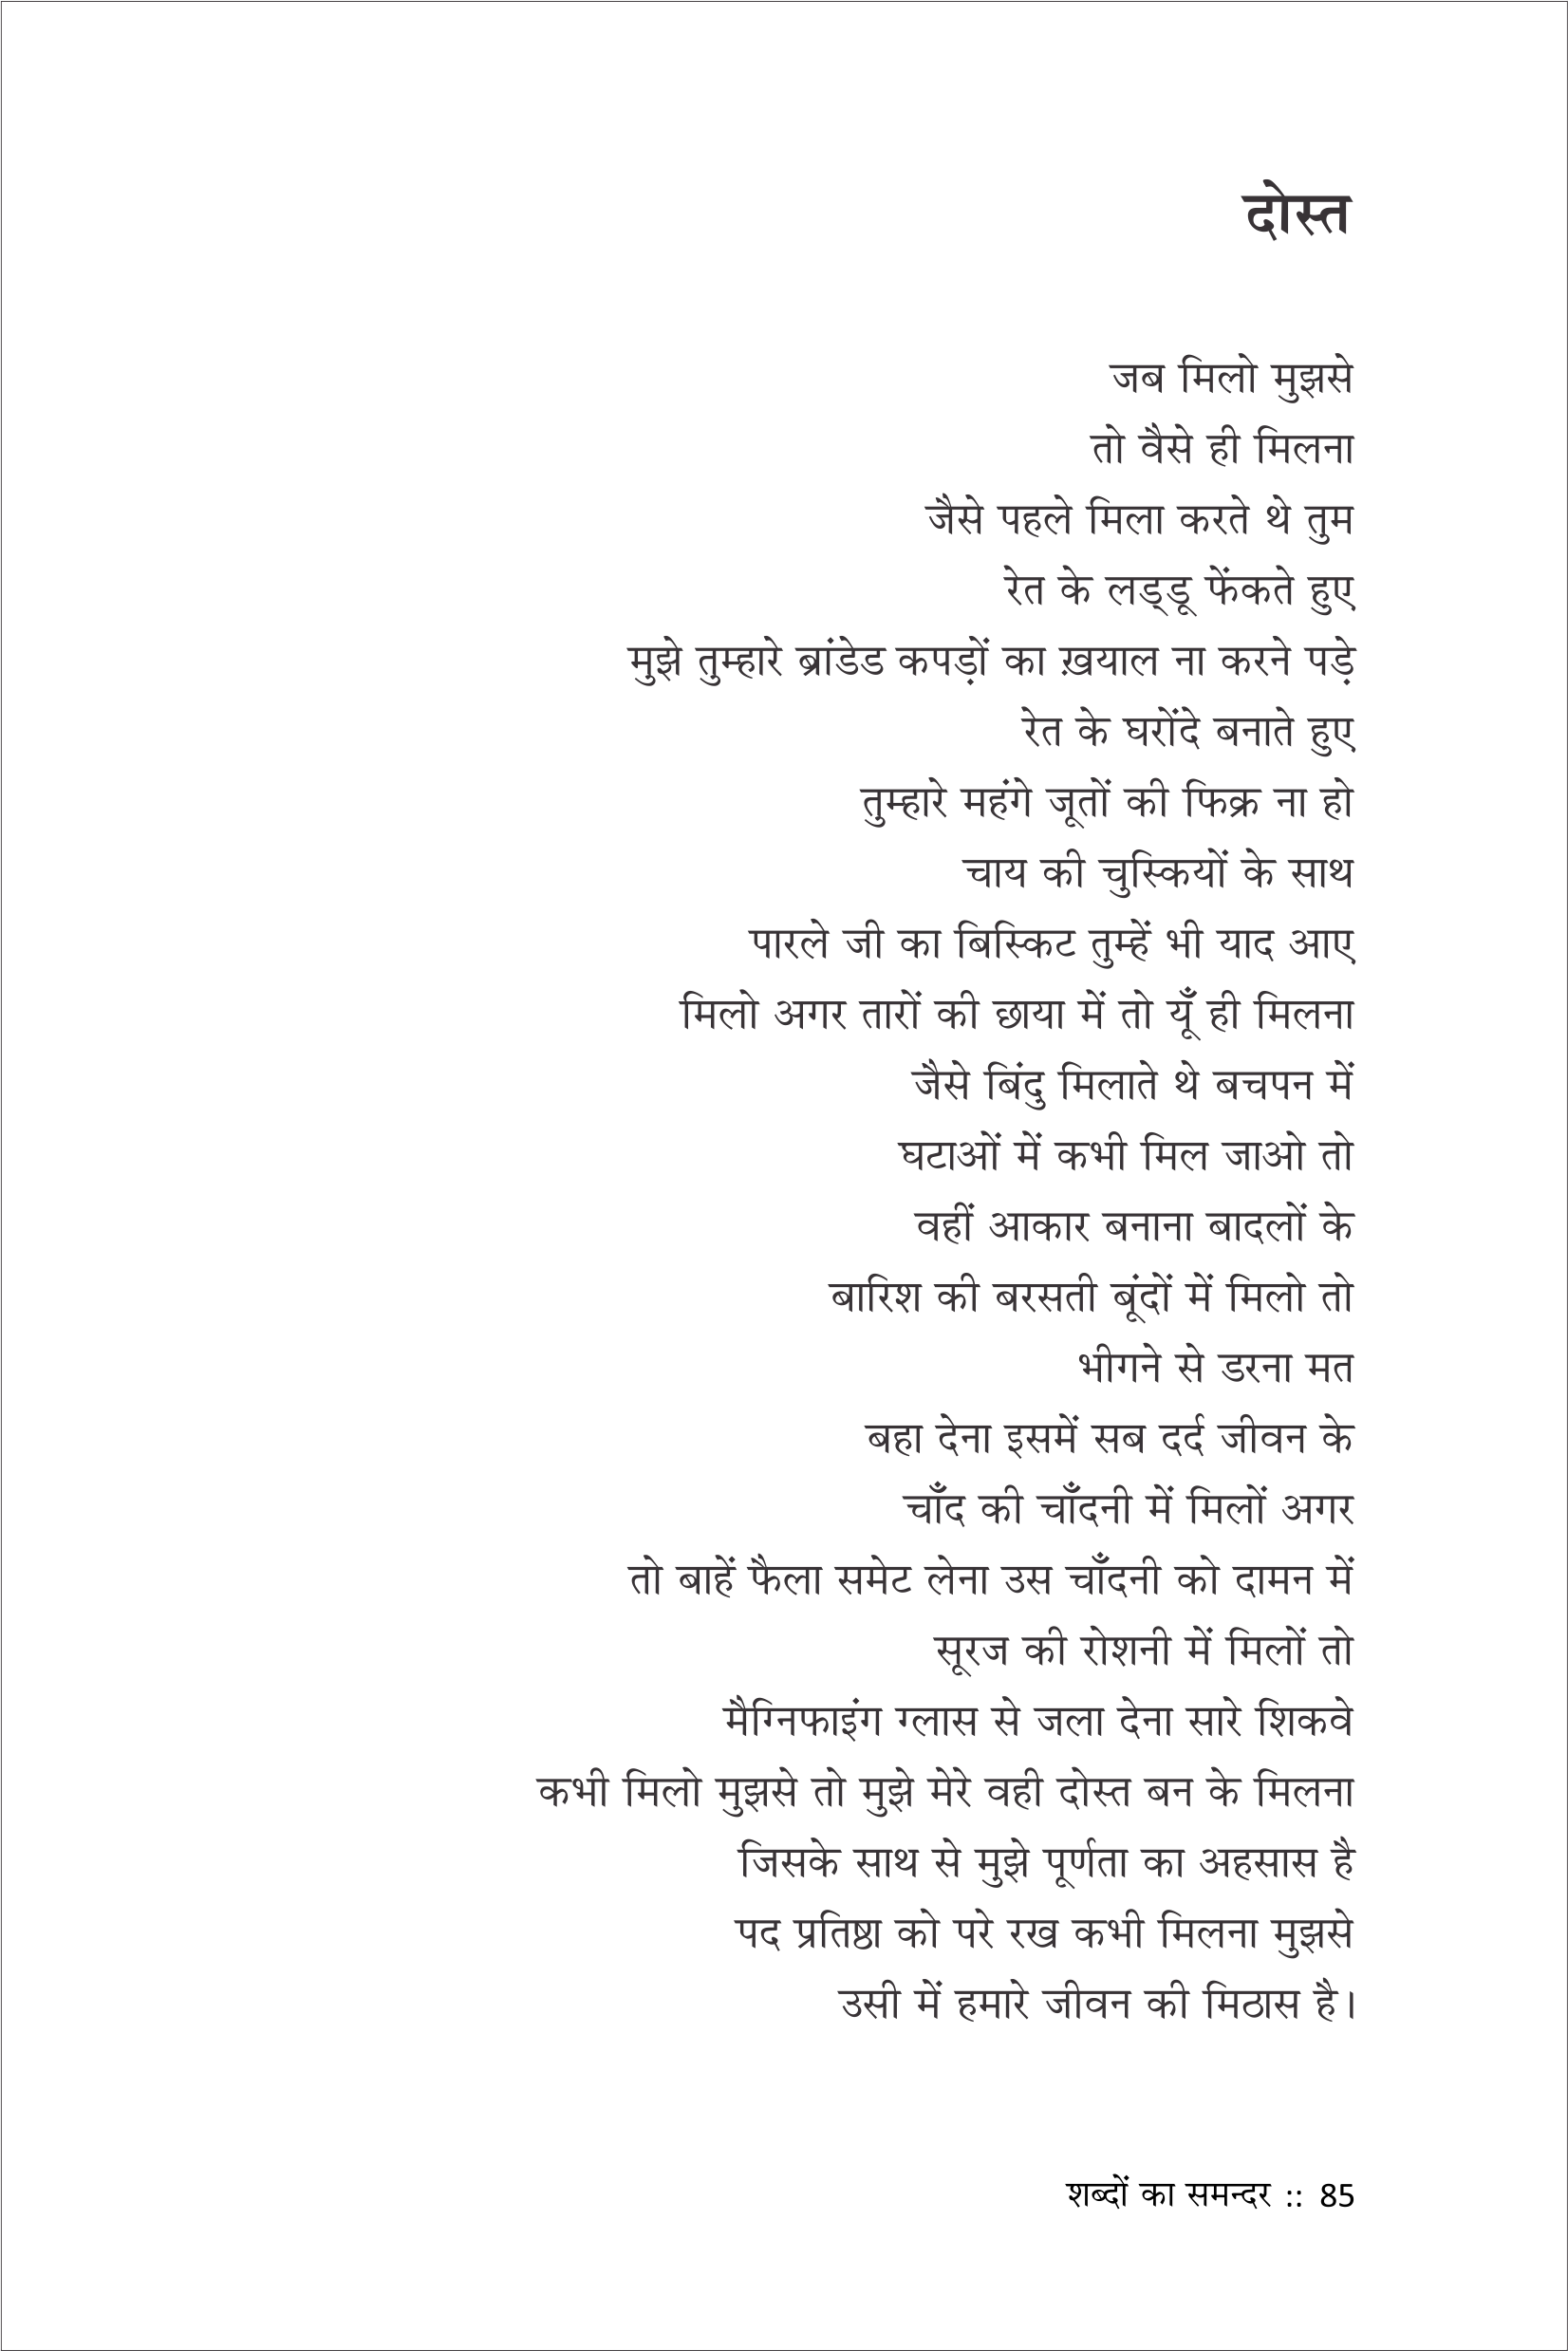 दोस्त
जब मिलो मुझसे
तो वैसे ही मिलना
जैसे पहले मिला करते थे तुम
रेत के लड्डू फेंकते हुए
मुझे तुम्हारे ब्रांडेड कपड़ों का ख़याल ना करने पड़े
रेत के घरोंदे बनाते हुए
तुम्हारे महंगे जूतों की फिक्र ना हो
चाय की चुस्कियों के साथ
पारले जी का बिस्किट तुम्हें भी याद आए
मिलो अगर तारों की छाया में तो यूँ ही मिलना
जैसे बिंदु मिलाते थे बचपन में
घटाओं में कभी मिल जाओ तो
वहीं आकार बनाना बादलों के
बारिश की बरसती बूंदों में मिलो तो
भीगने से डरना मत
बहा देना इसमें सब दर्द जीवन के
चाँद की चाँदनी में मिलों अगर
तो बाहें फैला समेट लेना उस चाँदनी को दामन में
सूरज की रोशनी में मिलों तो
मैग्निफाइंग ग्लास से जला देना सारे शिकवे
कभी मिलो मुझसे तो मुझे मेरे वही दोस्त बन के मिलना
जिसके साथ से मुझे पूर्णता का अहसास है
पद प्रतिष्ठा को परे रख कभी मिलना मुझसे
उसी में हमारे जीवन की मिठास है।
शब्दों का समन्दर :: 85